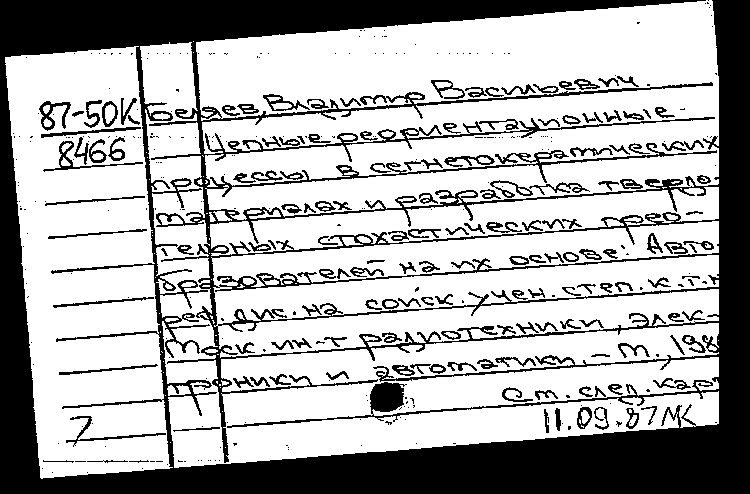 87-50К Беляев, Владимир Васильевич.
8466 Цепные реориентационные
процессы в сегнетокерамических
материалах и разработка твердо-
тельных стохастических прео-
бразователей на их основе: Авто-
реф. дис. на соиск. учен. степ. к.т.н
Моск. ин-т радиотехники, элек-
троники и автоматики. - М., 198
См. след. карт
7
11.09.87 МК